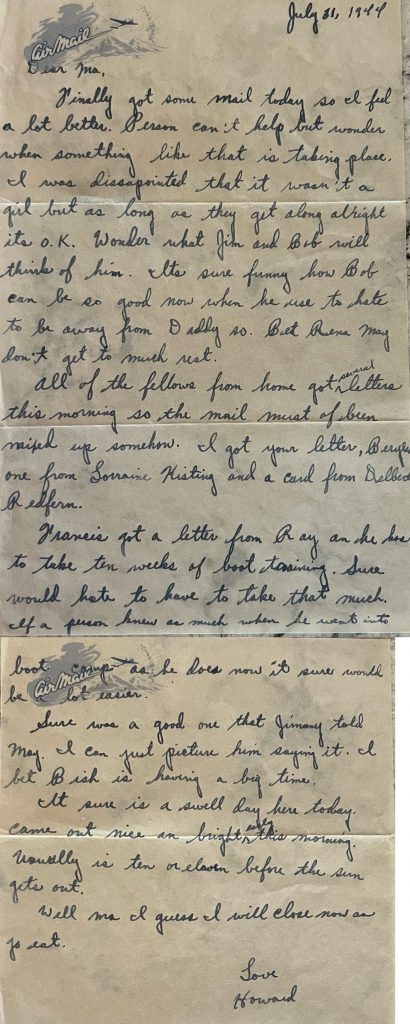 July 31, 1944
Air Mail
Dear Ma,
Finally got some mail today so I feel
a lot better. Person can't help but wonder
when something like that is taking place.
I was dissapointed that it wasn't a
girl but as long as they get along alright
its O.K. Wonder what Jim and Bob will
think of him. Its sure funny how Bob
can be so good now when he use to hate
to be away from Daddy so. Bet Rena May
don't get to much rest.
All of the fellows from home got several letters
this morning so the mail must of been
mixed up somehow. I got your letter,
one from Lorraine Kisting and a card from
Redfern.
Francis got a letter from Ray an he has
to take ten weeks of boot training. Sure
would hate to have to take that much.
If a person knew as much when he went into
Air Mail
boot camp as he does now it sure would
be lot easier.
Sure was a good one that Jimmy told
May. I can just picture him saying it. I
bet Bish is having a big time.
It sure is a swell day here today.
came out nice an bright early this morning.
Usually is ten or eleven before the sun
gets out.
Well ma I guess I will close now an
go eat.
Love
Howard